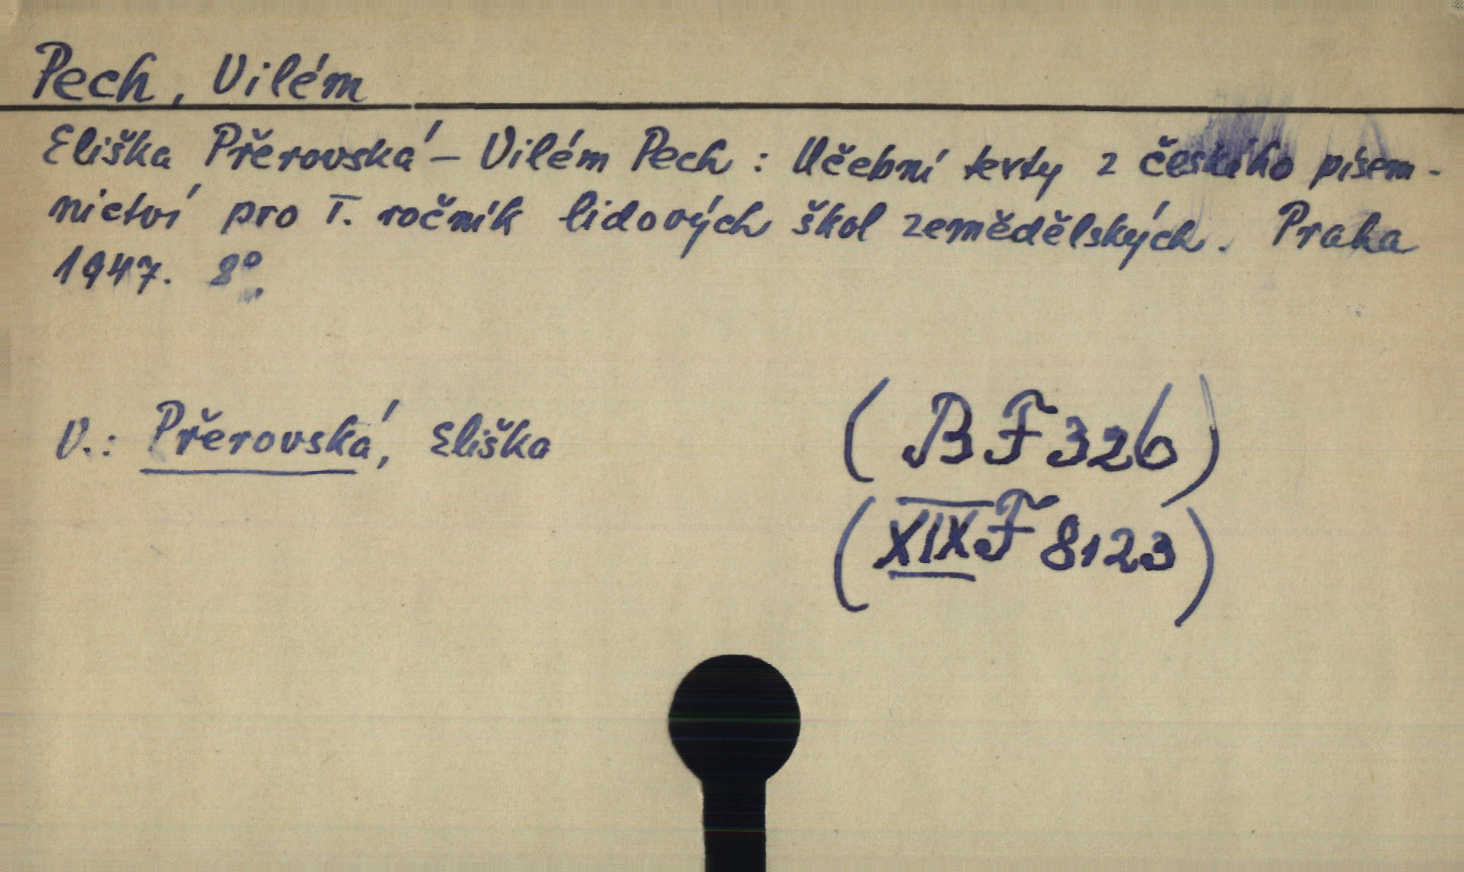 Pech, Vilém
Eliška Přerovská – Vilém Pech : Učební texty z českého písem-
nictví pro I. ročník lidových škol zemědělských. Praha
1947. 8°.
V.: Přerovská, Eliška
(BF 326)
(XIX F 8123)